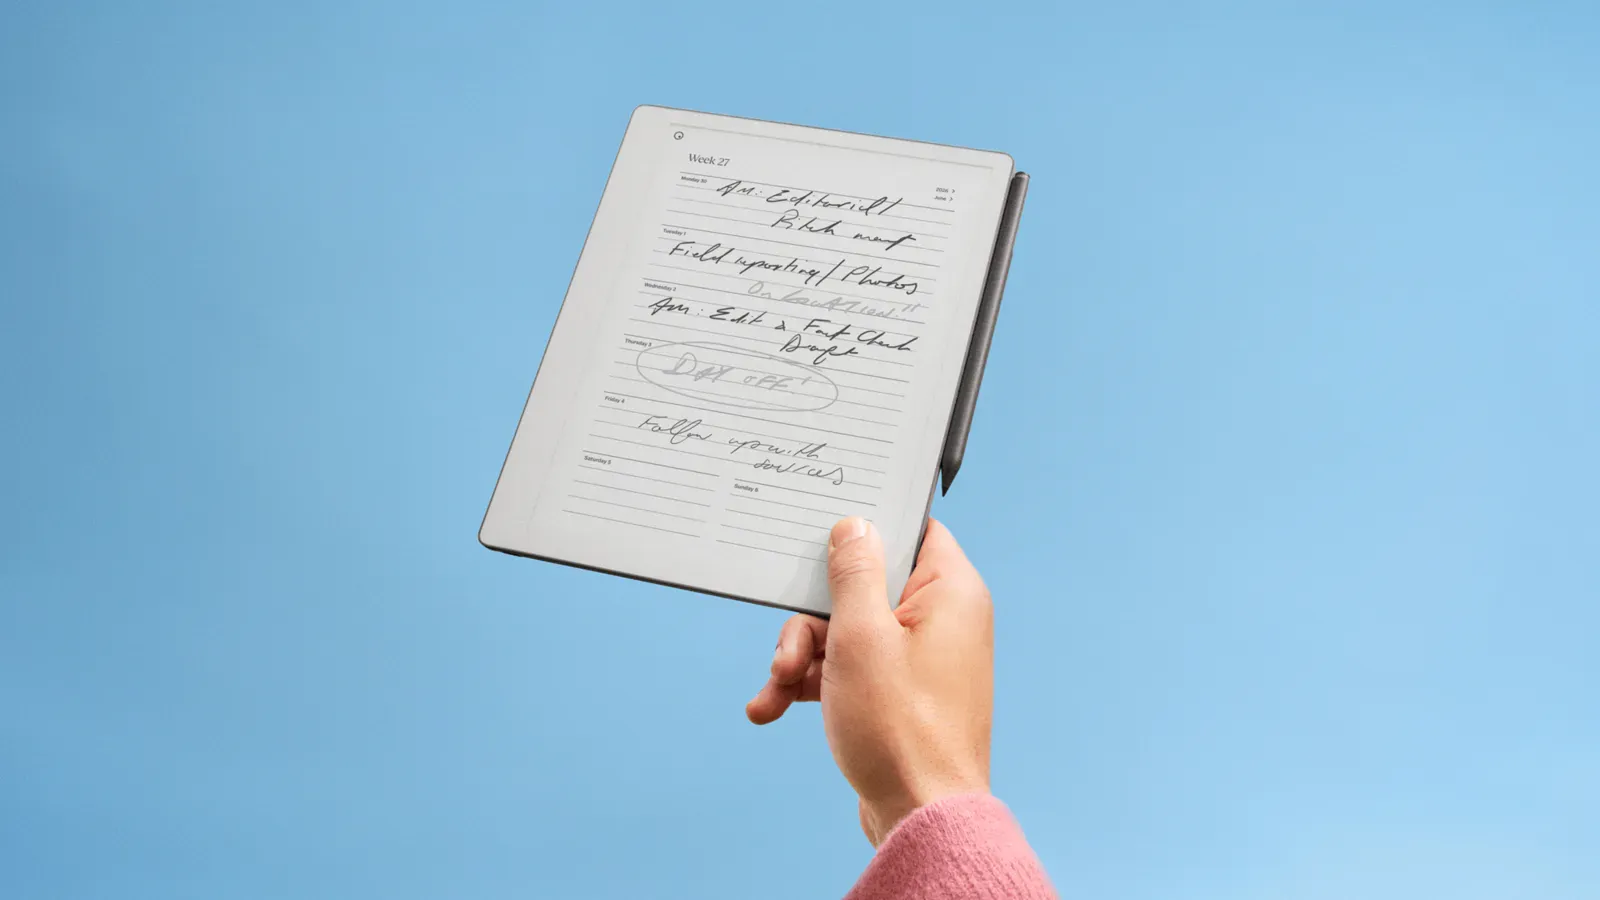 Week 27
2025 >
June >
Monday 30
AM: Editorial/
Pitch meet
Tuesday 1
Field reporting/Photos
On location!!
Wednesday 2
AM: Edit & Fact Check
Draft
Thursday 3
DAY OFF!
Friday 4
Follow up with
sources
Saturday 5
Sunday 6